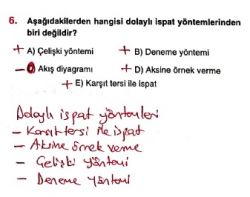 6. Aşağıdakilerden hangisi dolaylı ispat yöntemlerinden
biri değildir?
+ A) Çelişki yöntemi + B) Deneme yöntemi
- C) Akış diyagramı + D) Aksine örnek verme
+ E) Karşıt tersi ile ispat
Dolaylı ispat yöntemleri
- Karşıt tersi ile ispat
- Aksine örnek verme
- Çelişki yöntemi
- Deneme yöntemi